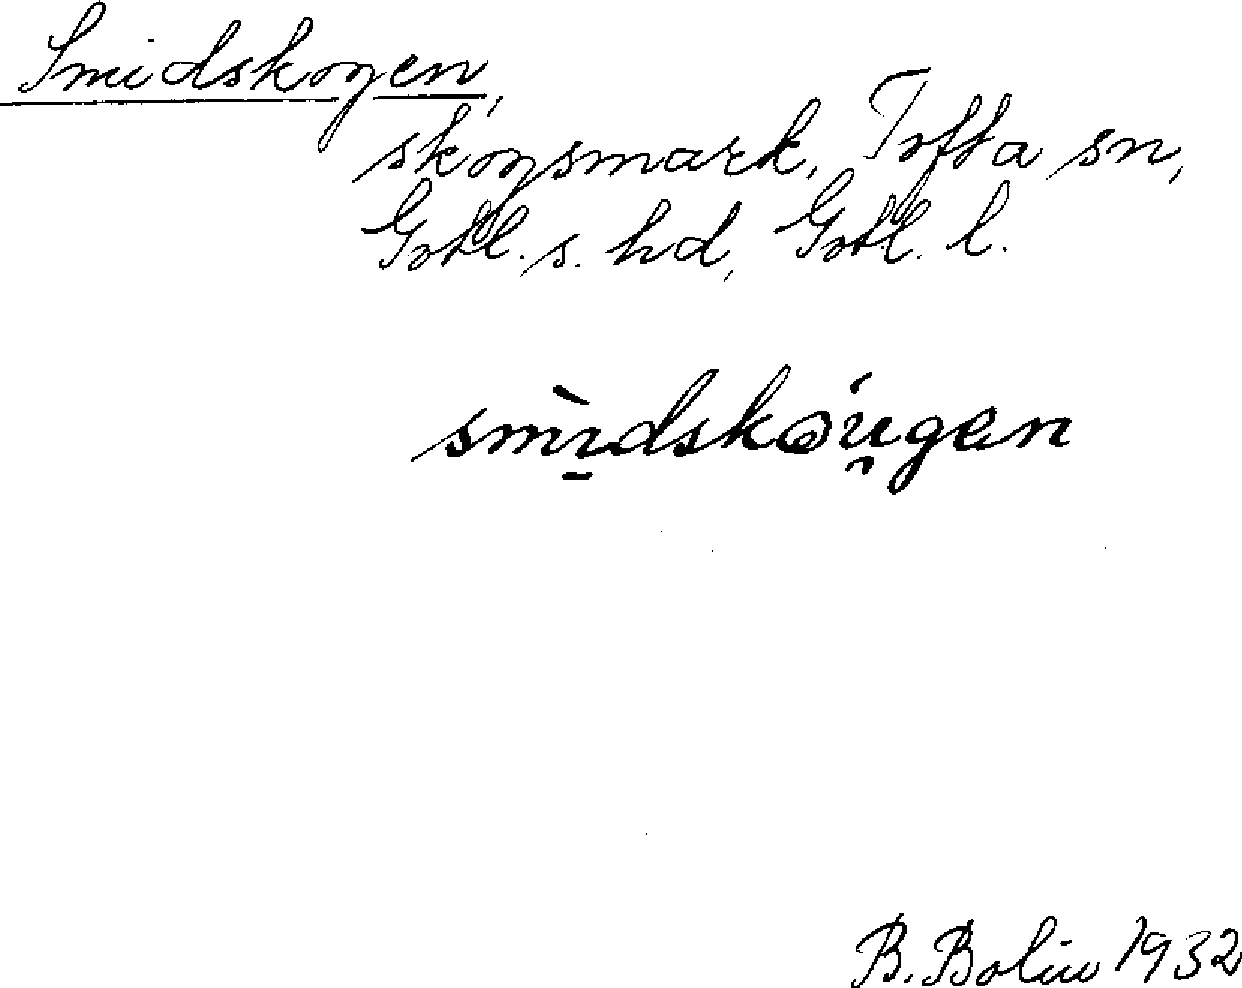 Smidskogen,
skogsmark, Tofta sn,
Gotl. s. hd, Gotl. l.
smì̱dskǝúgen
B. Bolin 1932